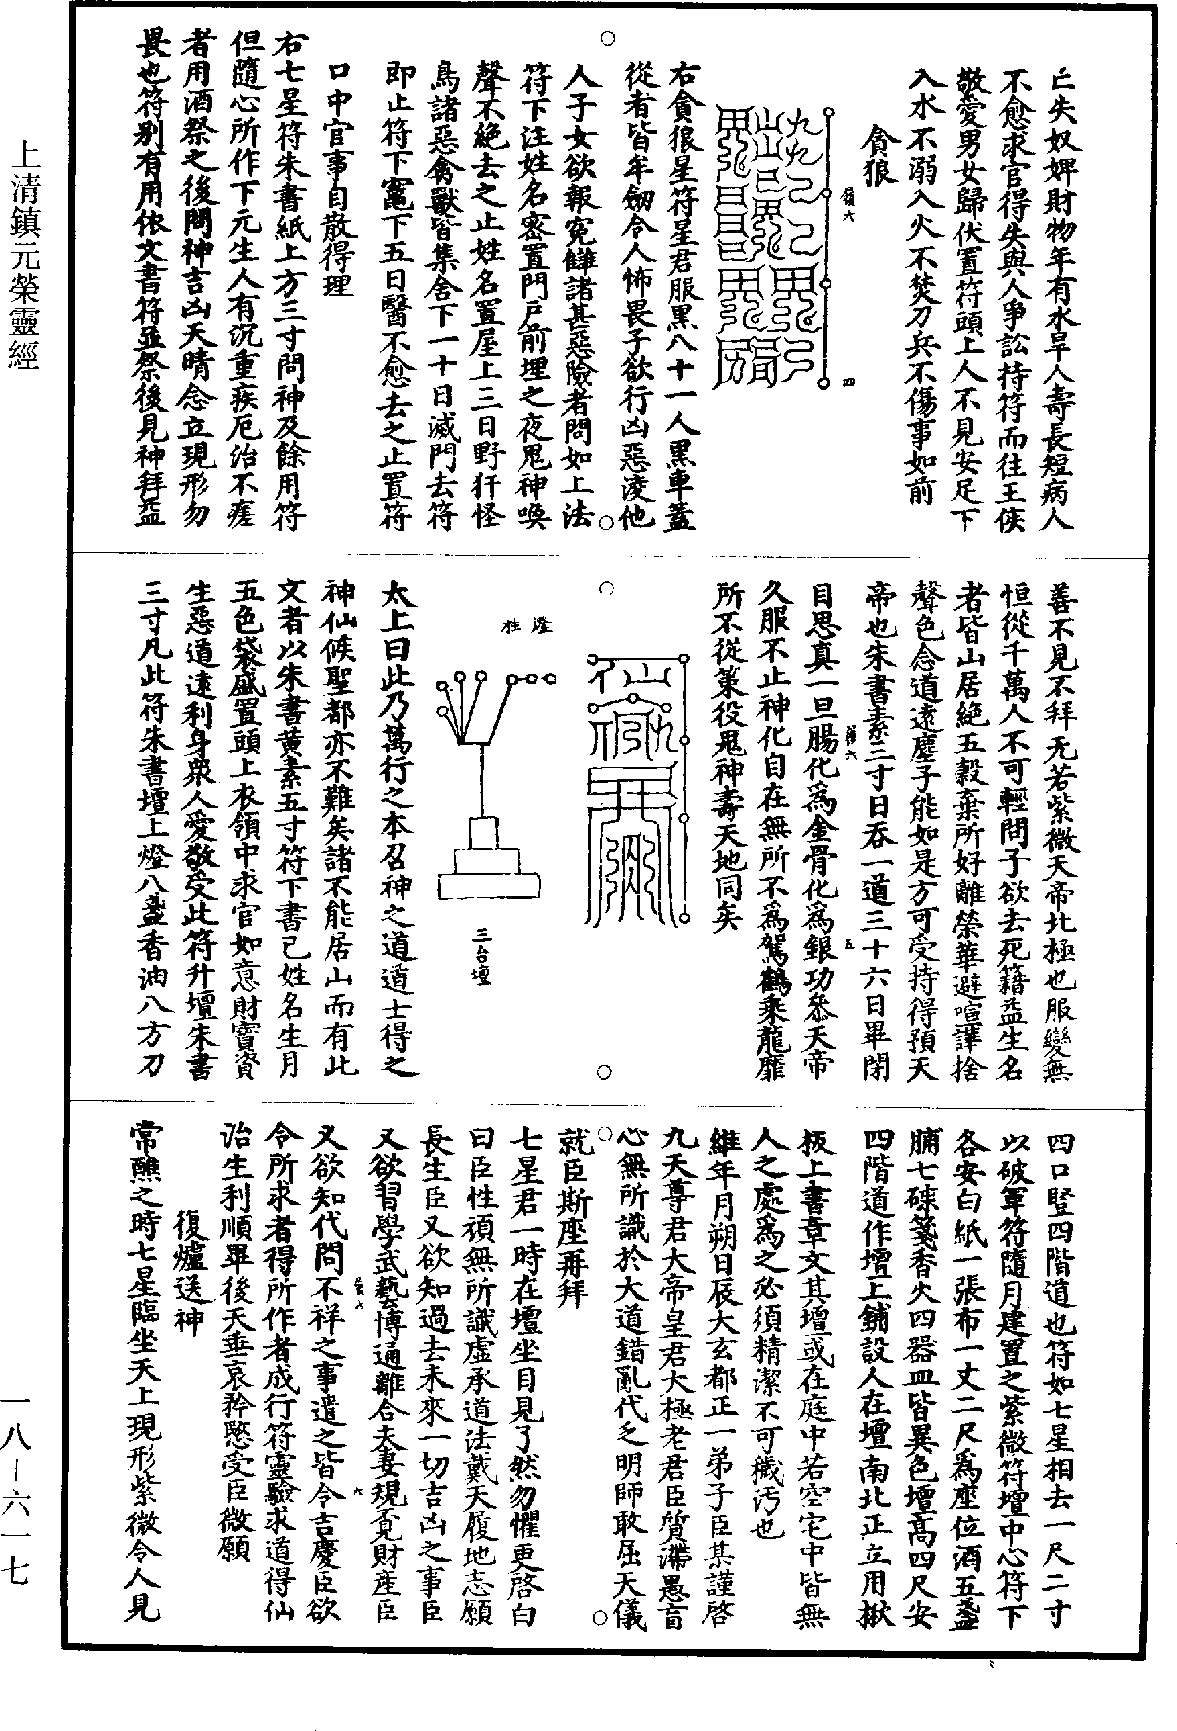 亡失奴婢財物年有水旱人壽長短病人
不愈求官得失與人爭訟持符而往王侯
敬愛男女歸伏置符頭上人不見安足下
入水不溺入火不焚刀兵不傷事如前
貪狼
四
右貪狼星符星君服黑八十一人黑車蓋
從者皆牟劒令人怖畏子欲行凶惡淩他
人子女欲報冤讎諸甚惡險者問如上法
符下注姓名密置門戶前埋之夜鬼神喚
聲不絕去之止姓名置屋上三日野犴怪
鳥諸惡禽獸皆集舍下一十日滅門去符
即止符下竈下五日醫不愈去之止置符
口中官事自散得理
右七星符朱書紙上方三寸問神及餘用符
但隨心所作下元生人有沉重疾厄治不瘥
者用酒祭之後問神吉凶天晴念立現形勿
畏也符别有用依文書符並祭後見神拜益
善不見不拜无若紫微天帝北極也服變無
恒從千萬人不可輕問子欲去死籍益生名
者皆山居絶五穀棄所好離榮華避喧譁捨
聲色念道遠塵子能如是方可受持得預天
帝也朱書素三寸日吞一道三十六日畢閉
五
目思真一旦腸化爲金骨化爲銀功叅天帝
久服不止神化自在無所不爲駕鶴乘龍靡
所不從策役鬼神壽天地同矣
三台壇
太上曰此乃萬行之本召神之道道士得之
神仙候聖都亦不難矣諸不能居山而有此
文者以朱書黄素五寸符下書己姓名生月
五色袋盛置頭上衣領中求官如意財寶資
生惡道遠利身衆人愛敬受此符升壇朱書
三寸凡此符朱書壇上燈八盞香油八方刀
四口竪四階道也符如七星相去一尺二寸
以破軍符隨月建置之紫微符壇中心符下
各安白紙一張布一丈二尺爲座位酒五盞
脯七梀箋香火四器皿皆異色壇高四尺安
四階道作壇上鋪設人在壇南北正立用椒
板上書章文其壇或在庭中若空宅中皆無
人之處爲之必須精潔不可穢污也
維年月朔日辰大玄都正一弟子臣某謹啓
九天尊君大帝皇君大極老君臣質滯愚盲
心無所識於大道錯亂代乏明師敢屈天儀
就臣斯座再拜
七星君一時在壇坐目見了然勿懼更啓白
曰臣性頑無所識虛承道法戴天履地志願
長生臣又欲知過去未來一切吉凶之事臣
又欲習學武藝博通離合夫妻規覔財産臣
六
又欲知代問不祥之事遣之皆令吉慶臣欲
令所求者得所作者成行符靈驗求道得仙
治生利順畢後天垂哀矜愍受臣微願
復爐送神
常醮之時七星臨坐天上現形紫微令人見
上清鎮元榮靈經
一八—六一七